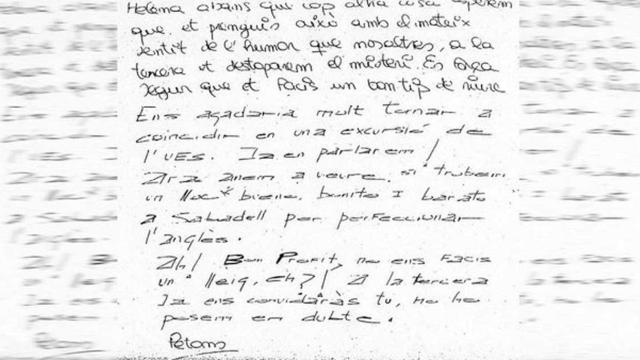 Helena abans que cap altra cosa esperem
que et prenguis això amb el mateix
sentit de l'humor que nosaltres, a la
tercera et destaparem el misteri. És
segur que et facis un bon tip de riure
Ens agadaria molt tornar a
coincidir en una excursió de
l'UES. Ja en parlarem!
Ara anem a veure si trobem
un lloc* bueno, bonito I barato
a Sabadell per perfeccionar
l'anglès.
Ah! Bon Profit, no ens Facis
un lleig, eh?! A la tercera
Ja ens convidaràs tu, no ho
posem en dubte.
Petons